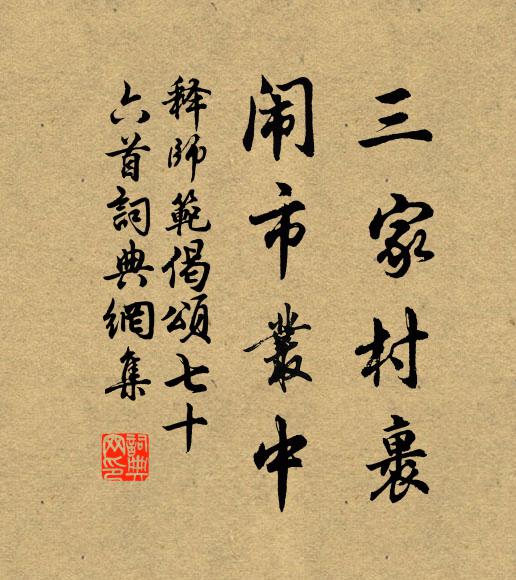 三家村裹
闹市叢中
释師範偈頌七十
六首詞典網集
詞典網印